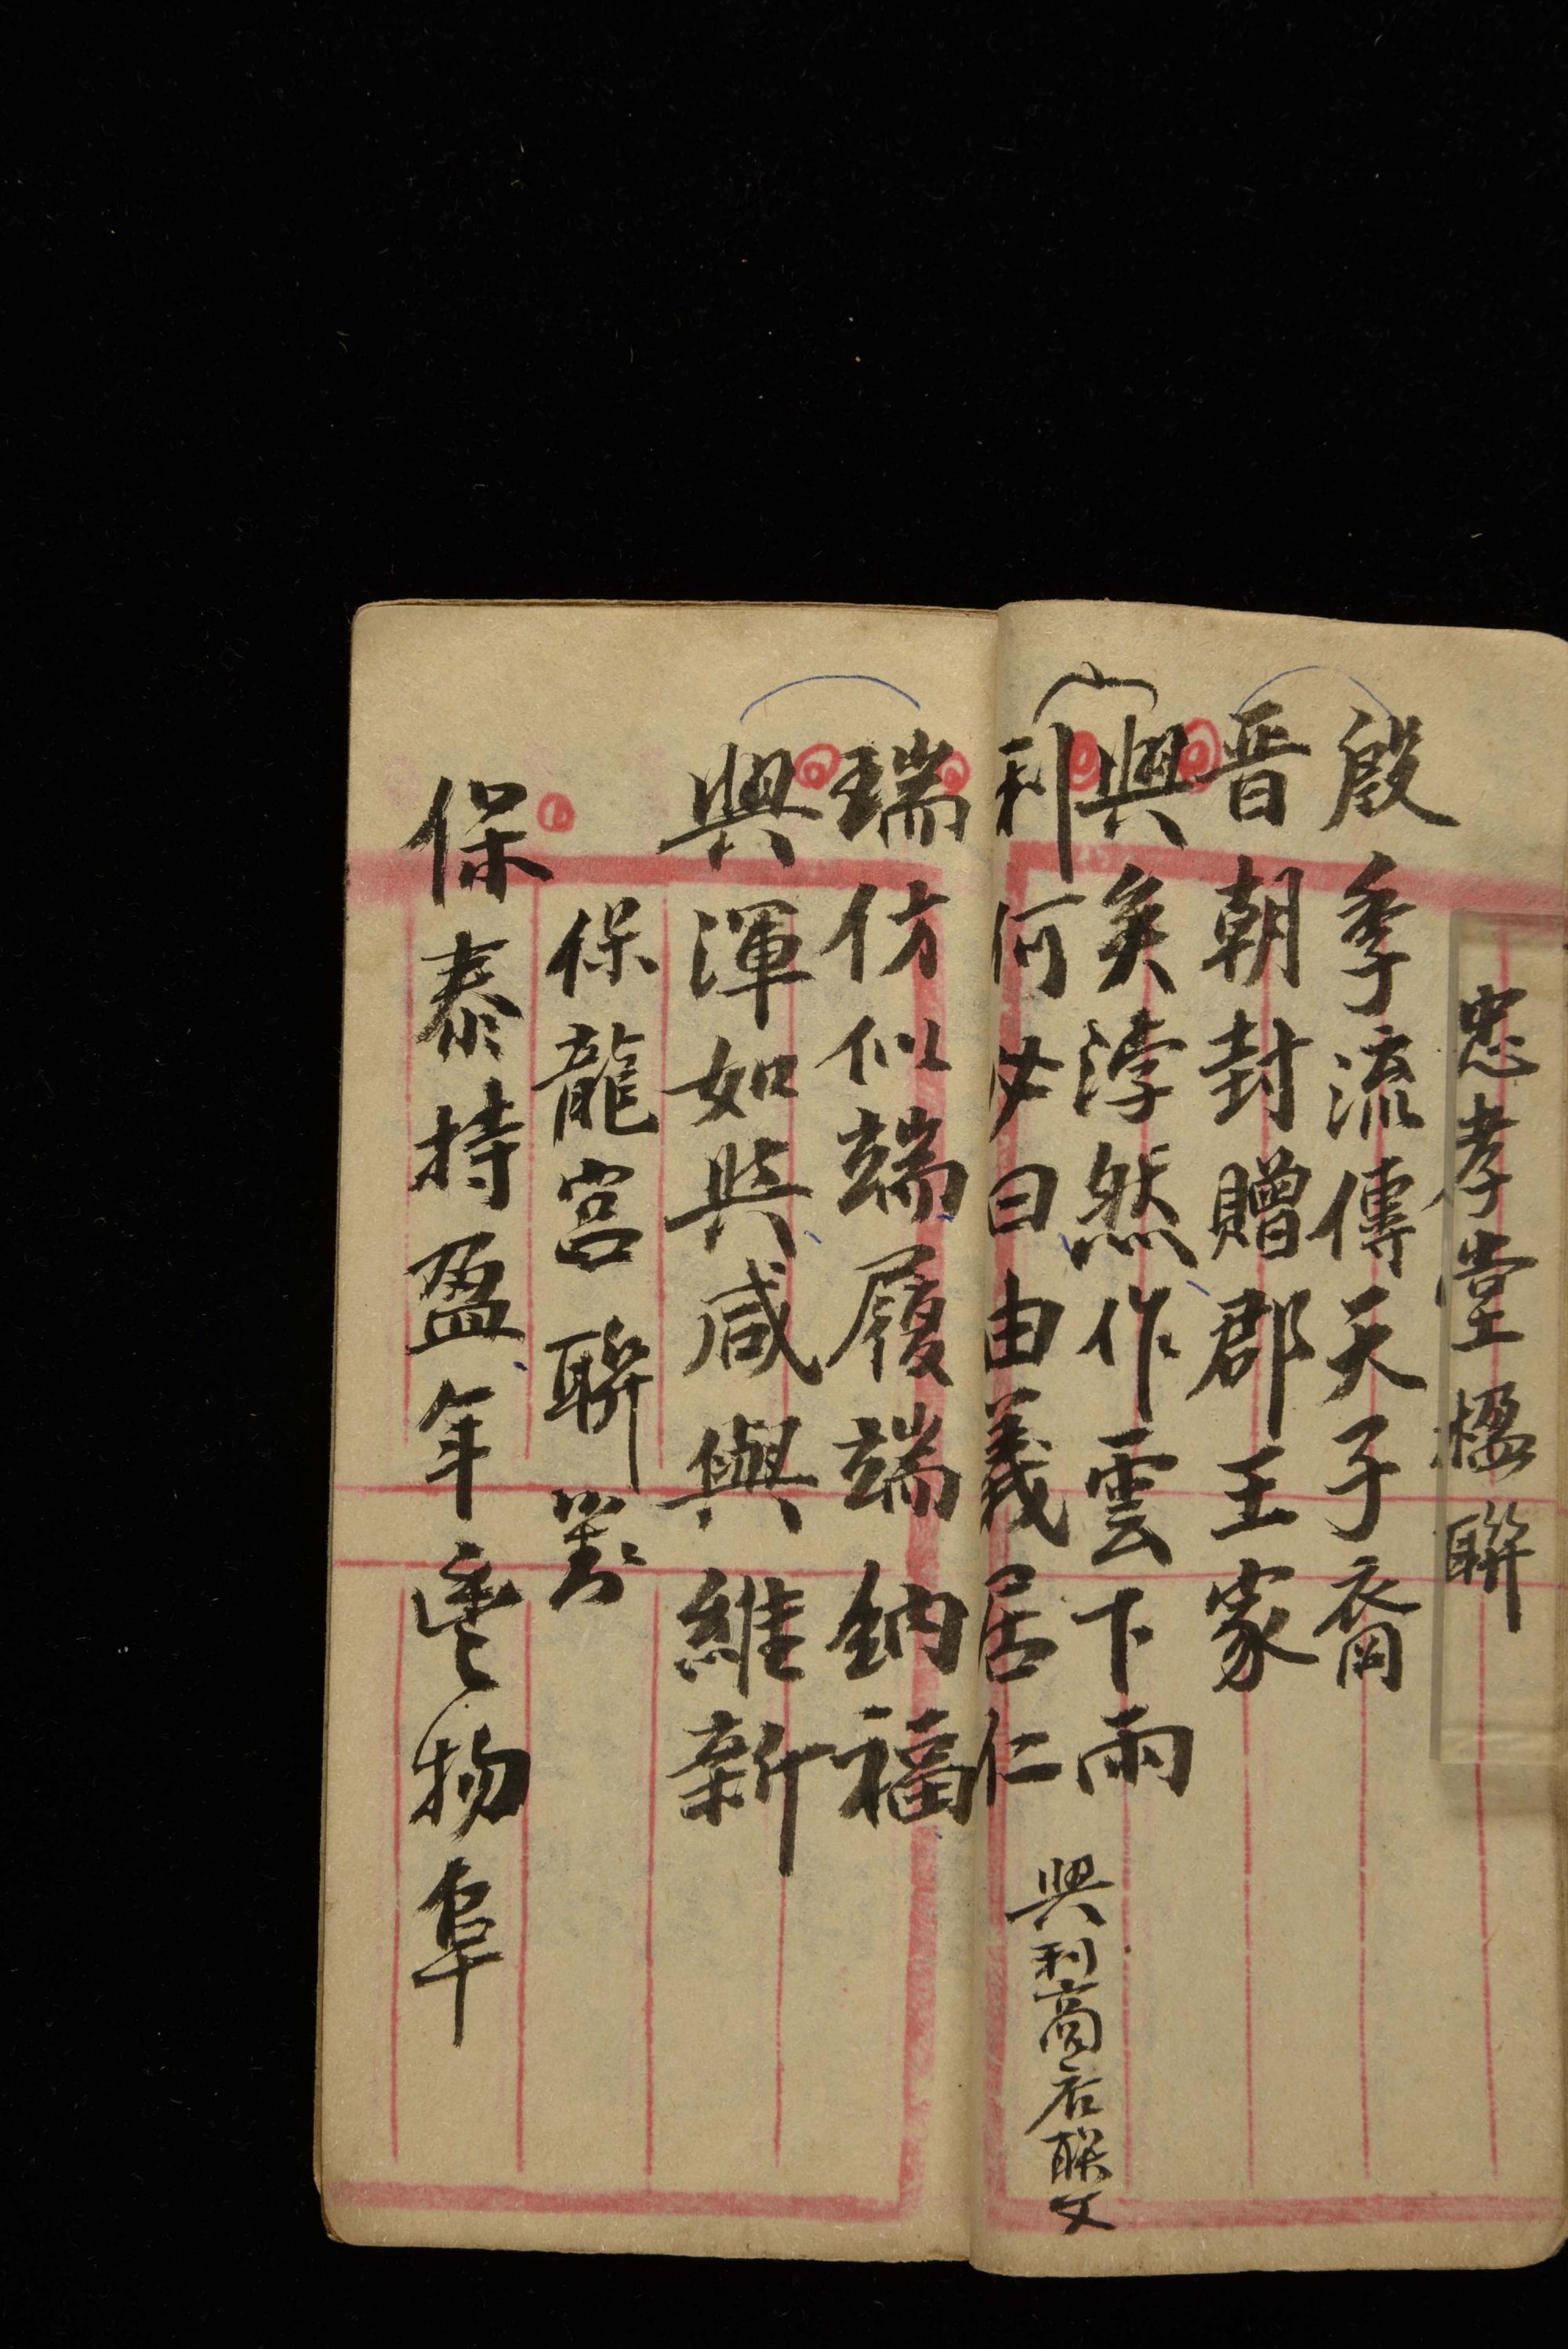 忠孝堂楹聯
殷季流傳天子裔
晋朝封贈郡王家
興矣浡然作雲下雨
利何必曰由義居仁
興利商店联文
瑞彷似端履端納福
興渾如與咸與維新
保龍宮聯對
保泰持盈年豊物阜